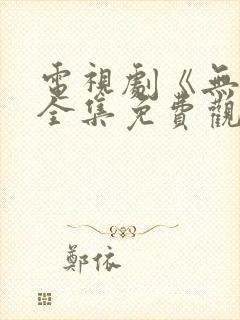 電視劇《無
全集免費觀
鄭依